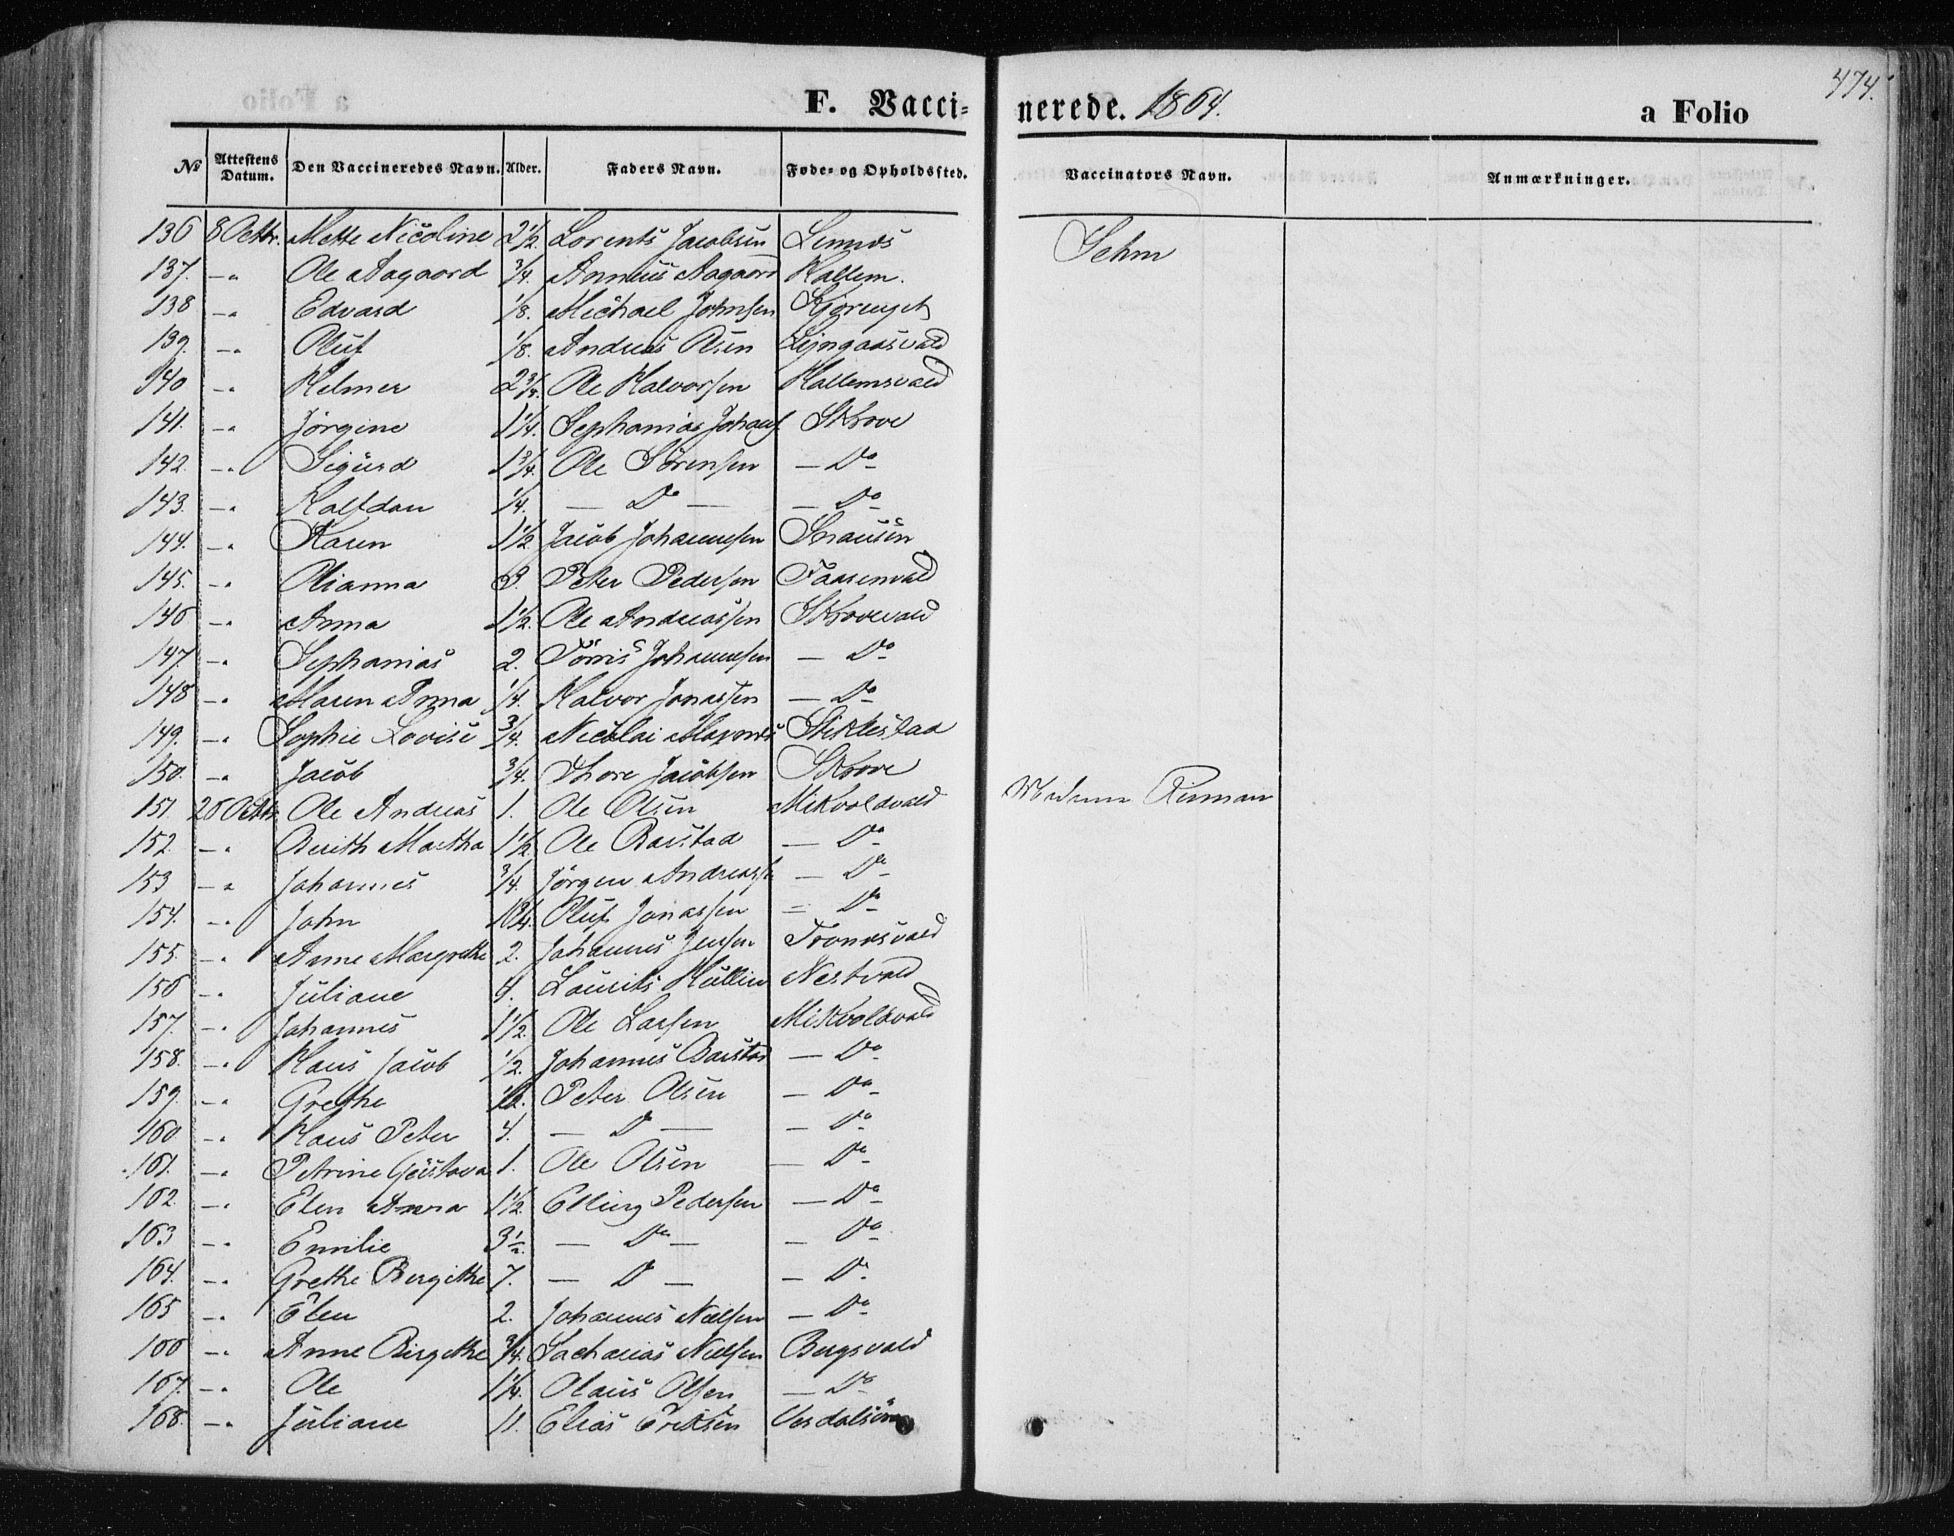 474.
F. Vacci=nerede. 1864. a Folio
No Attestens Datum. Den Vaccineredes Navn. Alder. Faders Navn. Føde= og Opholdssted. Vaccinators Navn. Anmærkninger.
136 8 Octbr. Mette Nicoline 2 1/2. Lorents Jacobsen Sehm
137. -" Ole Aagaard 3/4. Annæus Aagaard Hallem.
138 -" Edvard 1/8. Michael Johnsen
139. -" Oluf 1/8. Andreas Olsen
140 -" Helmer 2 3/4. Ole Halvorsen Hallemsvald
141. -" Jörgine 1 1/4. Sephanias Johans. Skrove
142. -" Sigurd 1 3/4. Ole Sörensen - Do -
143. -" Halfdan 1/4. - Do - - Do -
144. -" Karen 1 1/2 Jacob Johannesen Snausen
145. -" Olianna 3. Peter Pedersen Faarenvald
146 -" Anna 1 1/2. Ole Andreassen Skrovevald
147. -" Sephanias 2. Törris Johannesen - Do -
148 -" Maren Anna 1/4. Halvor Jonassen - Do -
149. -" Sophie Lovise 3/4. Nicolai Stiklestad
150. -" Jacob 3/4. Thore Jacobsen Skrove
151. 26 Octbr. Ole Andreas 1. Ole Olsen Mikvoldvald Madame
152. -" Berith Martha 1 1/2 Ole Barstad - Do -
153 -" Johannes 3/4. Jörgen Andreass. - Do -
154. -" John Oluf Jonassen - Do -
155. -" Anne Margrethe 2. Johannes Jensen Tronesvald
156 -" Juliane 4. Laurits Nestvald
157. -" Johannes 1 1/2. Ole Larsen Mikvoldvald
158. -" Hans Jacob 1/2. Johannes Barstad - Do -
159. -" Grethe Peter Olsen - Do -
160 -" Hans Peter 4. - D - - Do -
161. -" Petrine Gustava 1. Ole Olsen - Do -
162 -" Elen Anna 1 1/2 Elling Pedersen - Do -
163 -" Emilie 3 1/2. - Do - - Do -
164. -" Grethe Bergithe 7. - D - - Do -
165 -" Elen 2. Johannes Nielsen - Do -
166 -" Anne Birgithe 3/4. Sacharias Nielsen Bergsvald
167. -" Ole 1 1/4. Olaus Olsen - Do -
168. -" Juliane 11. Elias Eriksen Verdalsören